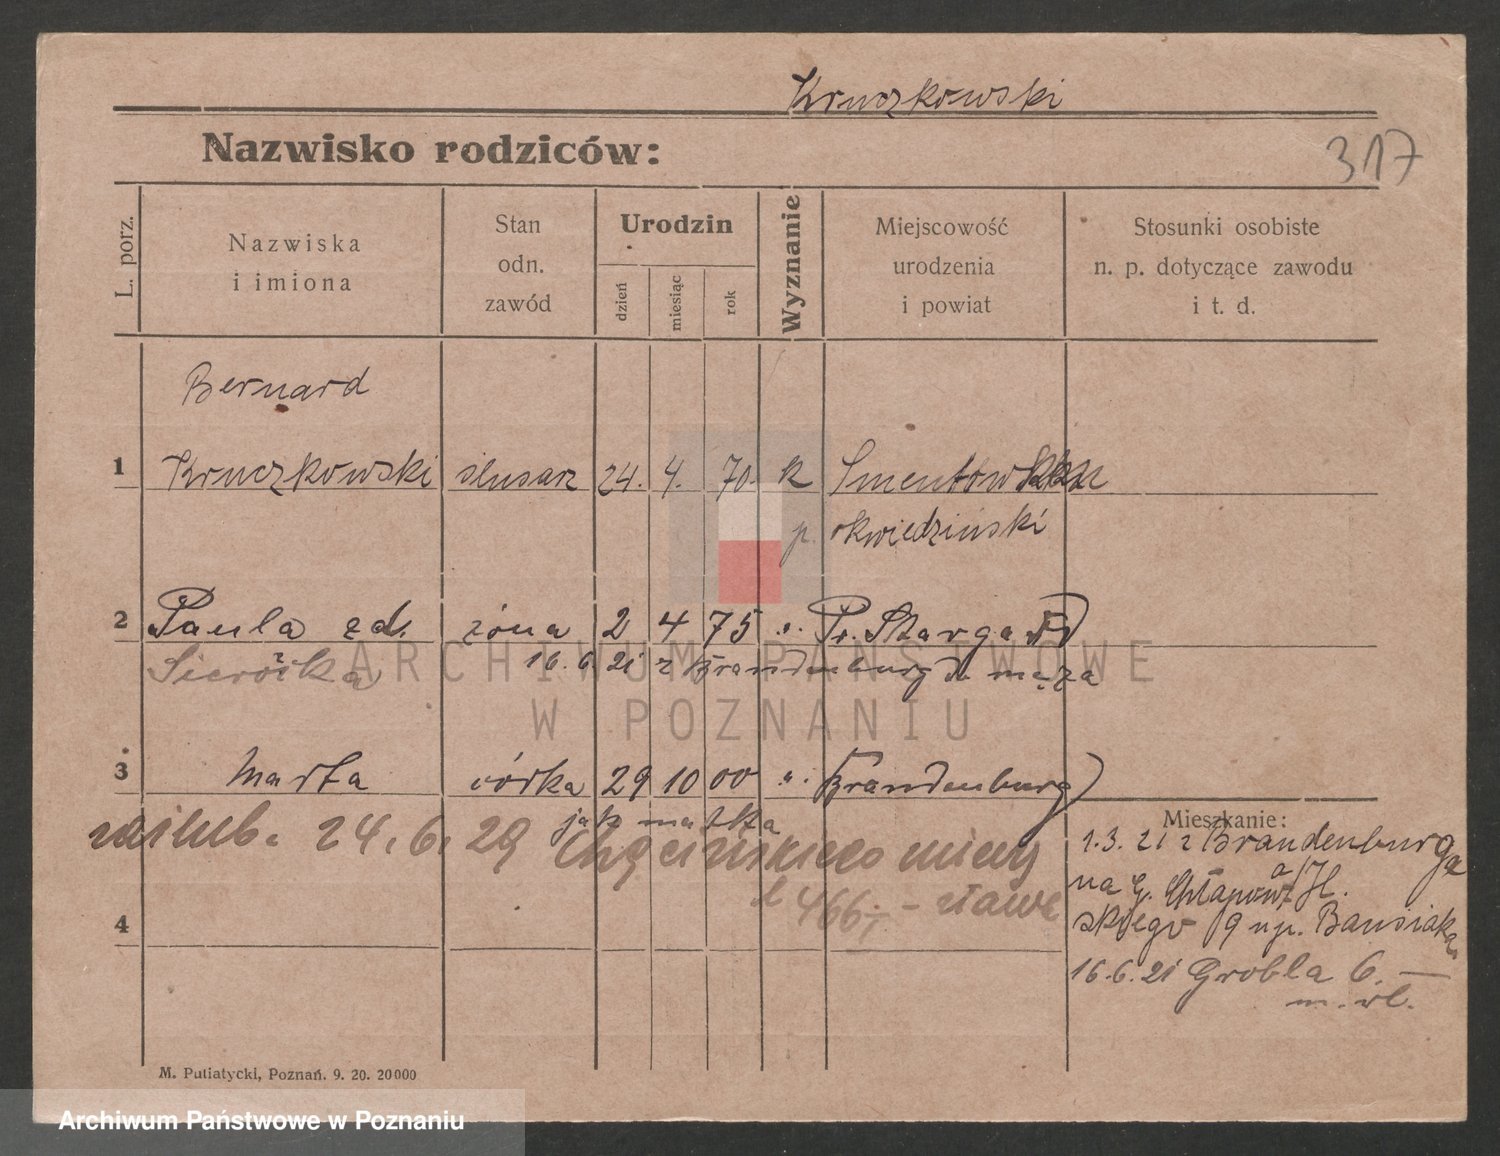 Kruczkowski
Nazwisko rodziców:
317
L. porz.
Nazwiska
i imiona
Stan
odn.
zawód
Urodzin
dzień
miesiąc
rok
Wyznanie
Miejscowość
urodzenia
i powiat
Stosunki osobiste
n. p. dotyczące zawodu
i t. d.
Bernard
1 Kruczkowski ślusarz 24. 4. 70. k Smentow
p. kwiedziński
2 Paula zd. żona 2 4 75 ". Pr. Stargard
Sierocka 16. 6. 21 z Brandenburg d. męża
3 Marta córka 29 10 00 ". Brandenburg
jak matka
zaślub. 24. 6. 29
466,-
4
Mieszkanie:
1. 3. 21 z Brandenburga
a/H.
na G. Chłapow
skiego 9 u p. Bansiaka
16. 6. 21 Grobla 6. —
m. wł.
M. Putiatycki, Poznań. 9. 20. 20000
ARCHIWUM PAŃSTWOWE
W POZNANIU
Archiwum Państwowe w Poznaniu